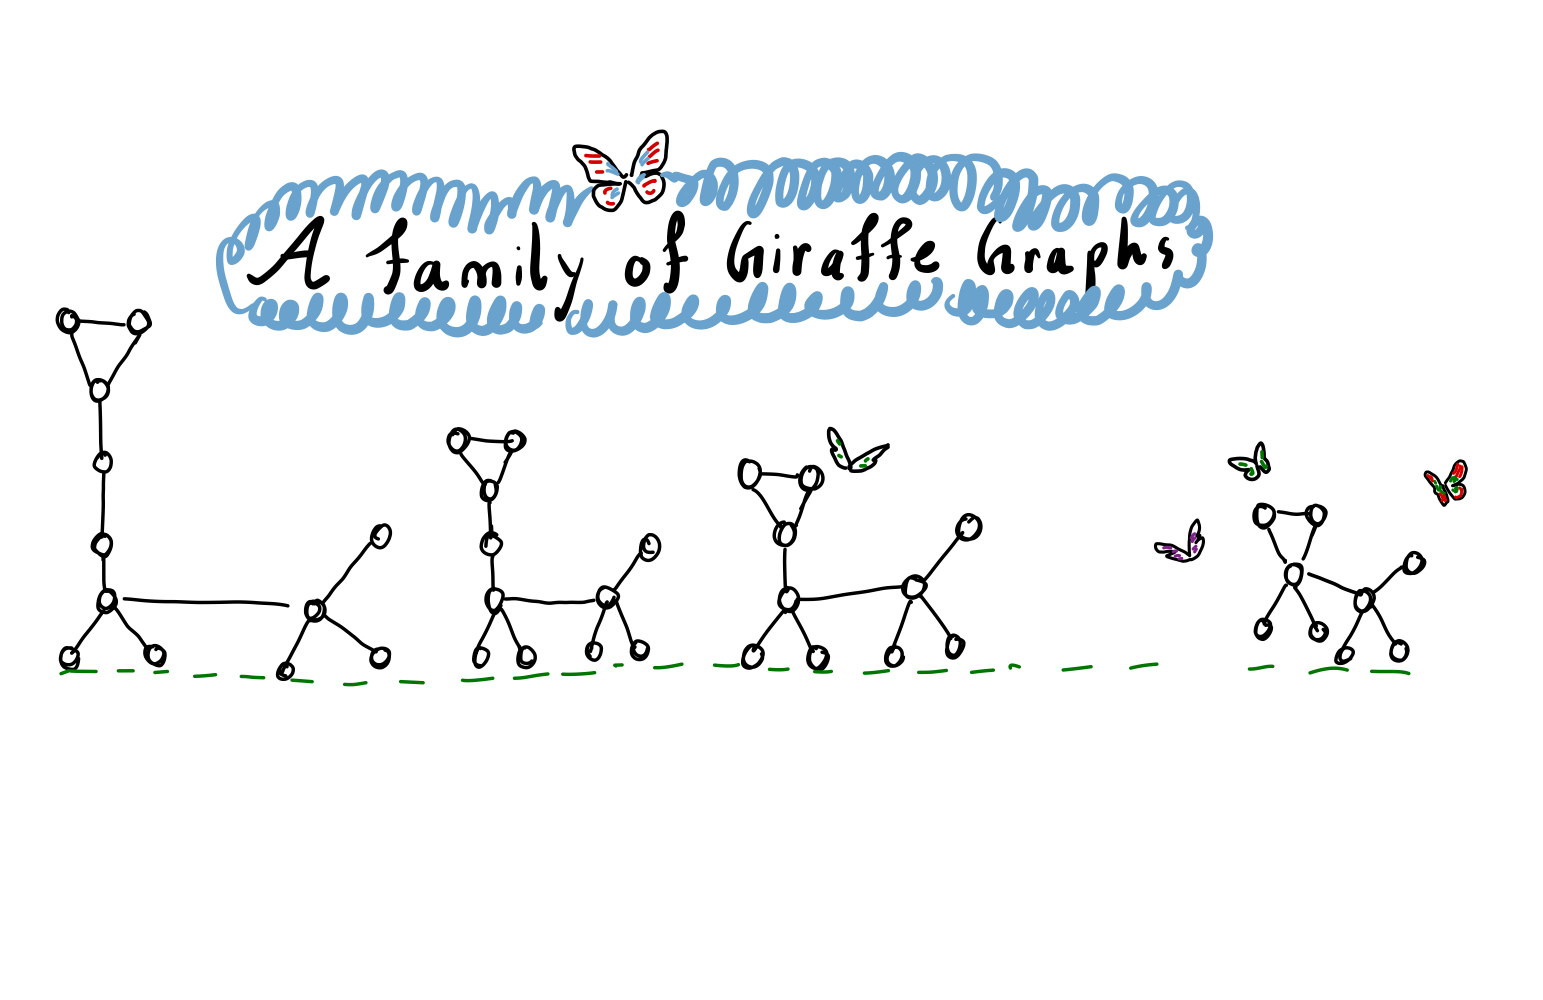 A family of Giraffe Graphs